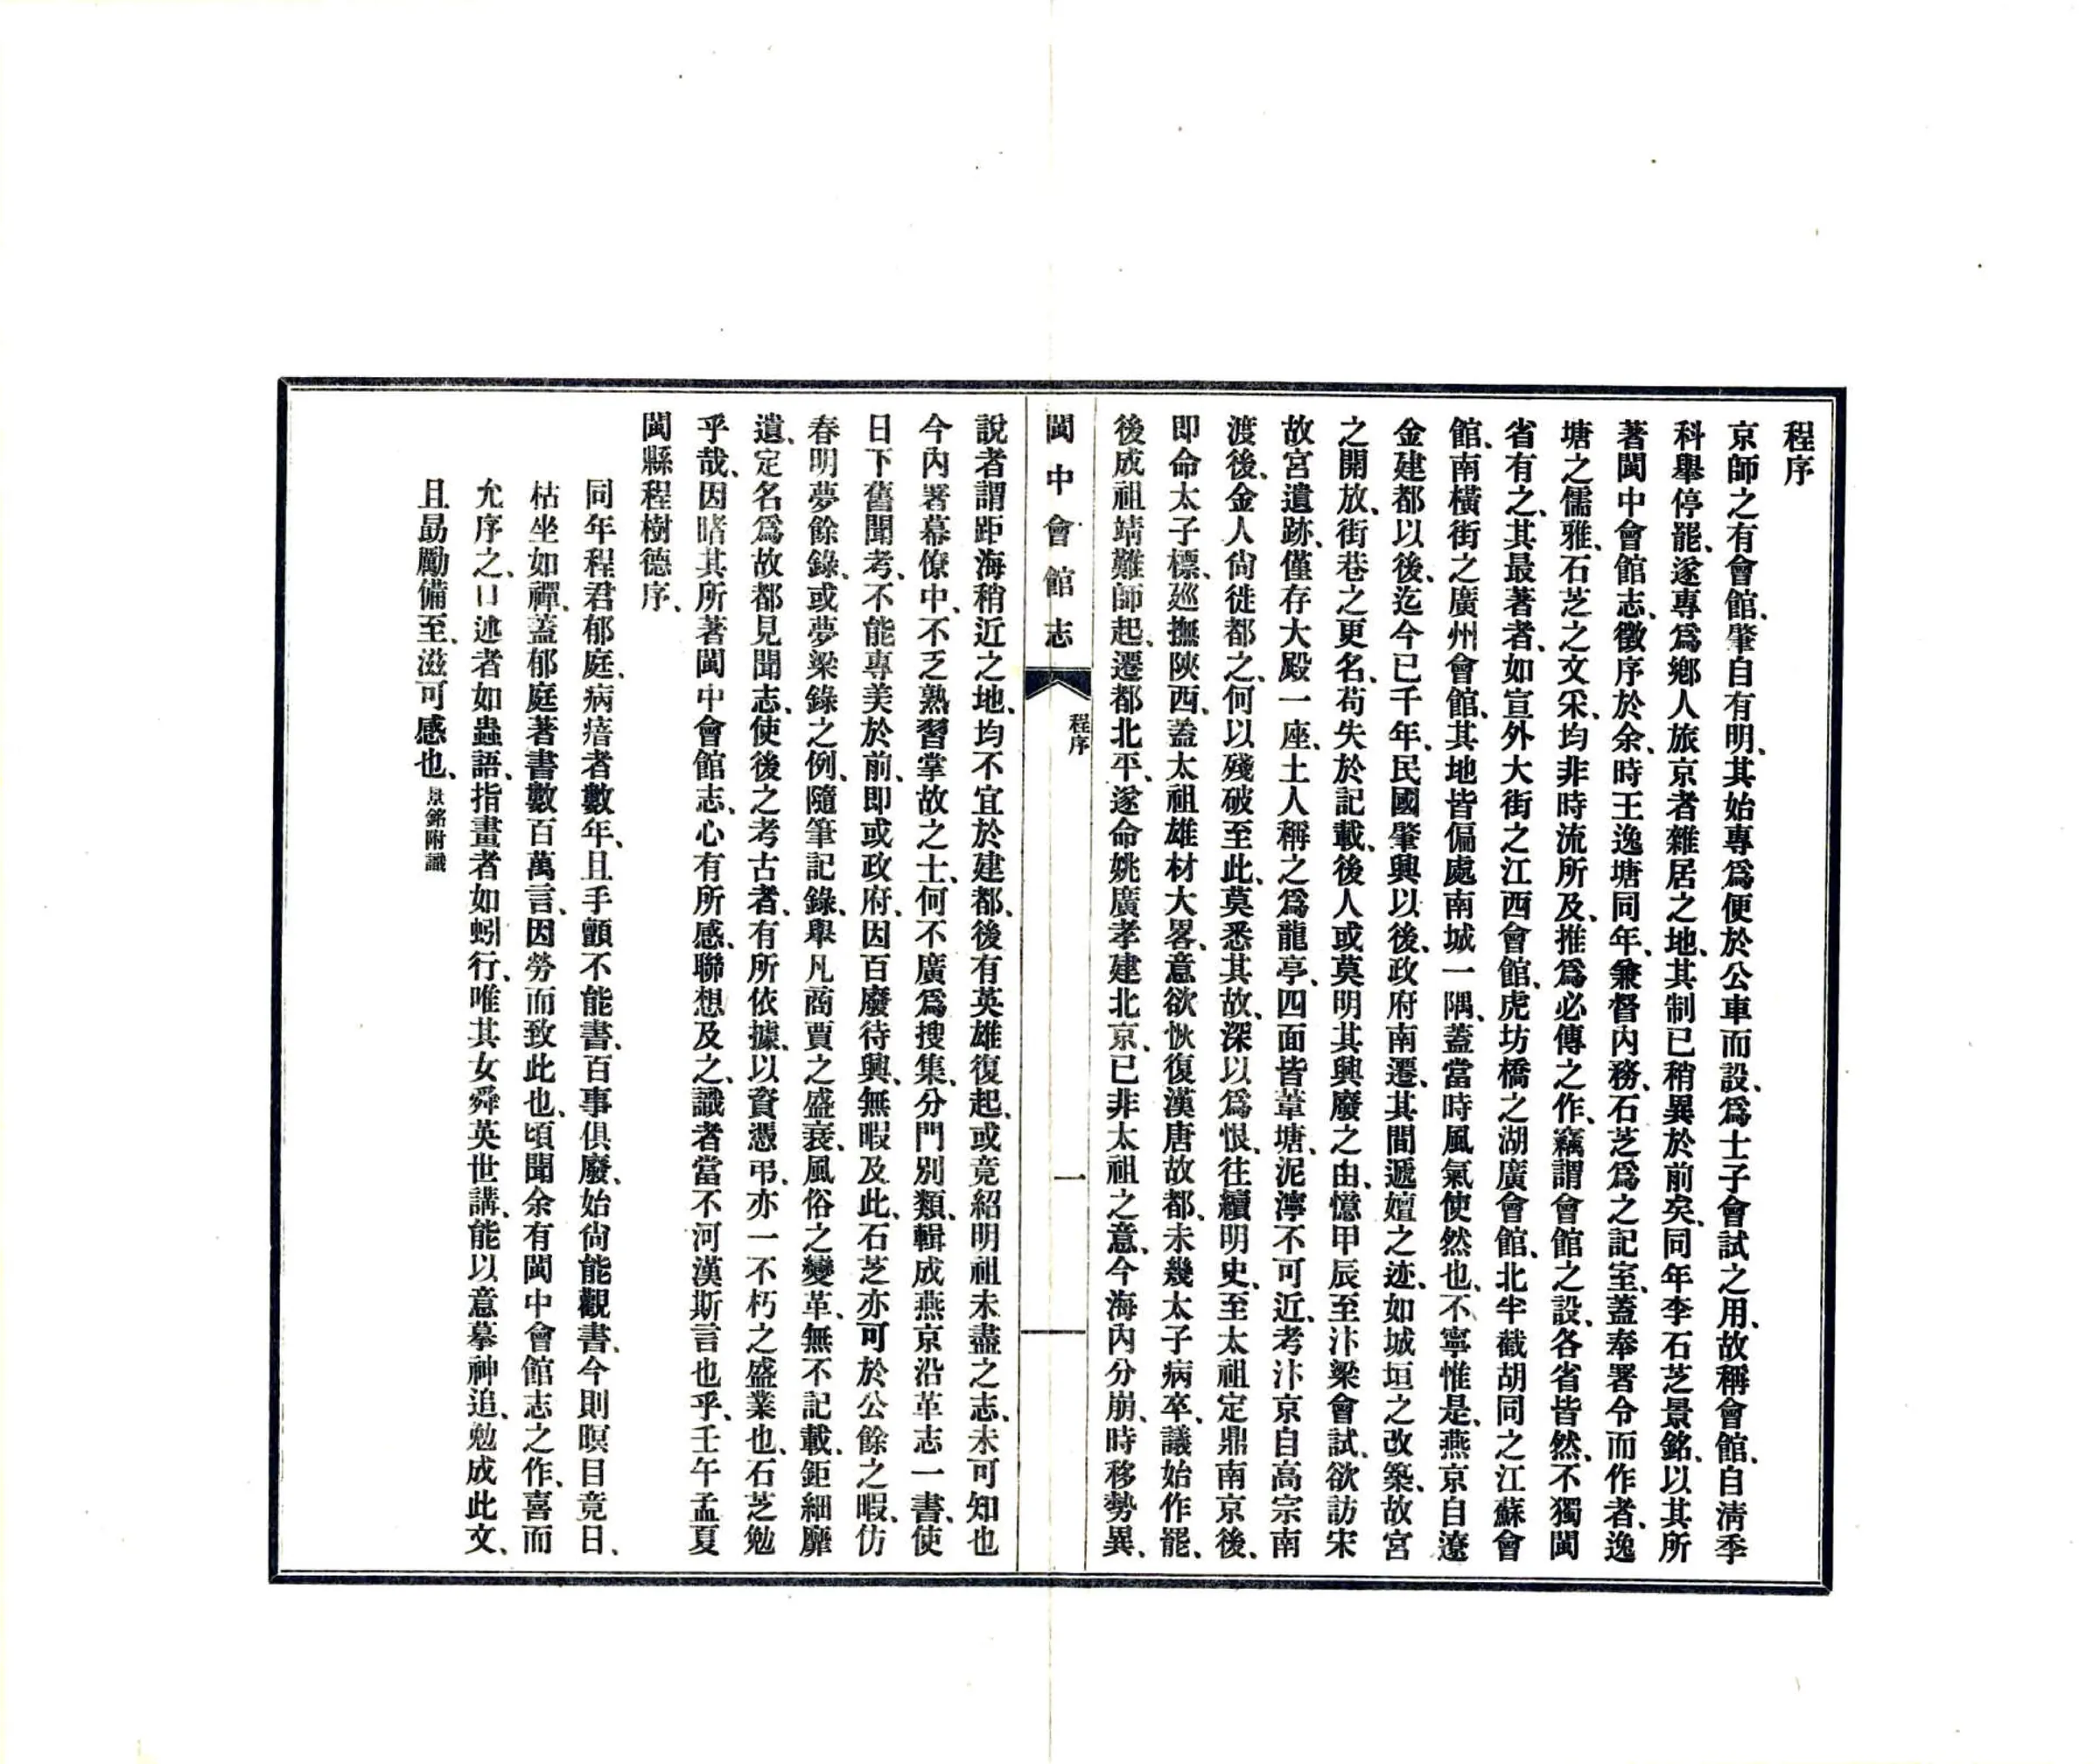 程序
京師之有會館、肇自有明、其始專爲便於公車而設、爲士子會試之用、故稱會館、自淸季
科舉停罷、遂專爲鄉人旅京者雜居之地、其制已稍異於前矣、同年李石芝景銘、以其所
著閩中會館志、徵序於余、時王逸塘同年、兼督內務、石芝爲之記室、蓋奉署令而作者、逸
塘之儒雅、石芝之文采、均非時流所及、推爲必傳之作、竊謂會館之設、各省皆然、不獨閩
省有之、其最著者、如宣外大街之江西會館、虎坊橋之湖廣會館、北半截胡同之江蘇會
館、南橫街之廣州會館、其地皆偏處南城一隅、蓋當時風氣使然也、不寧惟是、燕京自遼
金建都以後、迄今已千年、民國肇興以後、政府南遷、其間遞嬗之迹、如城垣之改築、故宮
之開放、街巷之更名、苟失於記載、後人或莫明其興廢之由、憶甲辰至汴梁會試、欲訪宋
故宮遺跡、僅存大殿一座、土人稱之爲龍亭、四面皆葦塘、泥濘不可近、考汴京自高宗南
渡後、金人尙徙都之、何以殘破至此、莫悉其故、深以爲恨、往續明史、至太祖定鼎南京後、
即命太子標、巡撫陝西、蓋太祖雄材大畧、意欲恢復漢唐故都、未幾太子病卒、議始作罷、
後成祖靖難師起、遷都北平、遂命姚廣孝建北京、已非太祖之意、今海內分崩、時移勢異、
閩中會館志
程序
一
說者謂距海稍近之地、均不宜於建都、後有英雄復起、或竟紹明祖未盡之志、未可知也
今內署幕僚中、不乏熟習掌故之士、何不廣爲搜集、分門別類、輯成燕京沿革志一書、使
日下舊聞考、不能專美於前、即或政府、因百廢待興、無暇及此、石芝亦可於公餘之暇、仿
春明夢餘錄、或夢梁錄之例、隨筆記錄、舉凡商賈之盛衰、風俗之變革、無不記載、鉅細靡
遺、定名爲故都見聞志、使後之考古者、有所依據、以資憑弔、亦一不朽之盛業也、石芝勉
乎哉、因睹其所著閩中會館志、心有所感、聯想及之、識者當不河漢斯言也乎、壬午孟夏
閩縣程樹德序、
同年程君郁庭、病瘖者數年、且手顫不能書、百事俱廢、始尙能觀書、今則暝目竟日、
枯坐如禪、蓋郁庭著書數百萬言、因勞而致此也、頃聞余有閩中會館志之作、喜而
允序之、口述者如蟲語、指畫者如蚓行、唯其女舜英世講、能以意摹神追、勉成此文、
且勗勵備至、滋可感也、景銘附識